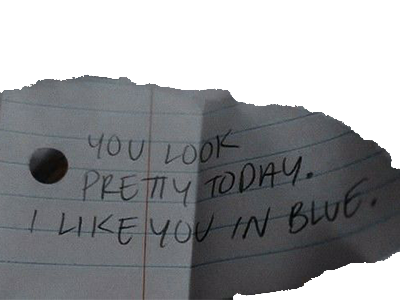 YOU LOOK
PRETTY TODAY.
I LIKE YOU IN BLUE.